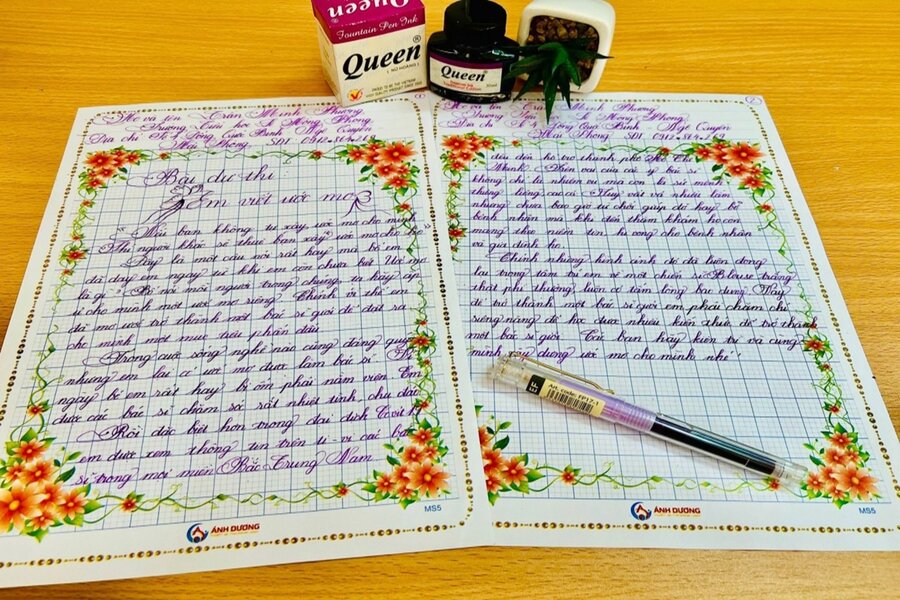 Queen
Fountain Pen Ink
Queen
( NỮ HOÀNG )
Queen
30ml
①
Họ và tên Trần Minh Phương
Trường Tiểu học Lê Hồng Phong
Địa chỉ Tổ Tông Quốc Bình Ngô Quyền
Hải Phòng SĐT 0912
Bài dự thi
Em viết ước mơ
"Nếu bạn không tự xây ước mơ cho mình
Thì người khác sẽ thuê bạn xây ước mơ cho họ"
Đây là một câu nói rất hay mà bố em
đã dạy em ngay từ khi em còn chưa biết Ước mơ
là gì Bố nói mỗi người trong chúng ta hãy ấp
ủ cho mình một ước mơ riêng Chính vì thế em
đã mơ ước trở thành một bác sĩ giỏi để đặt ra
cho mình một mục tiêu phấn đấu
Trong cuộc sống nghề nào cũng đáng quý
nhưng em lại có ước mơ được làm bác sĩ Từ
ngày bé em rất hay bị ốm phải nằm viện Em
được các bác sĩ chăm sóc rất nhiệt tình, chu đáo
Rồi đặc biệt hơn trong đại dịch Covit 19
em được xem thông tin trên ti-vi các bác
sĩ trong mọi miền Bắc Trung Nam
ÁNH DƯƠNG
MS5
②
Họ và tên Trần Minh Phương
Trường Lê Hồng Phong
Địa chỉ Quốc Bình Ngô Quyền
Hải Phòng SĐT 0912
đều đến hỗ trợ thành phố Hồ Chí
Minh Trên vai của các y bác sĩ
không chỉ là nhiệm vụ mà còn là sứ mệnh
thiêng liêng cao cả Tuy vất vả nhiều lắm
nhưng chưa bao giờ từ chối giúp đỡ hay bỏ
bệnh nhân mà khi đến thăm khám họ còn
mang theo niềm tin, hi vọng cho bệnh nhân
và gia đình họ
Chính những hình ảnh đó đã luôn đọng
lại trong tâm trí em về một chiến sĩ Blouse trắng
thật phi thường luôn có tấm lòng bao dung Vậy
để trở thành một bác sĩ giỏi em phải chăm chỉ
siêng năng để học được nhiều kiến thức để trở thành
một bác sĩ giỏi Các bạn hãy kiên trì và cùng
mình xây dựng ước mơ cho mình nhé!
EF
Art. code: FP17-1
ÁNH DƯƠNG
MS5